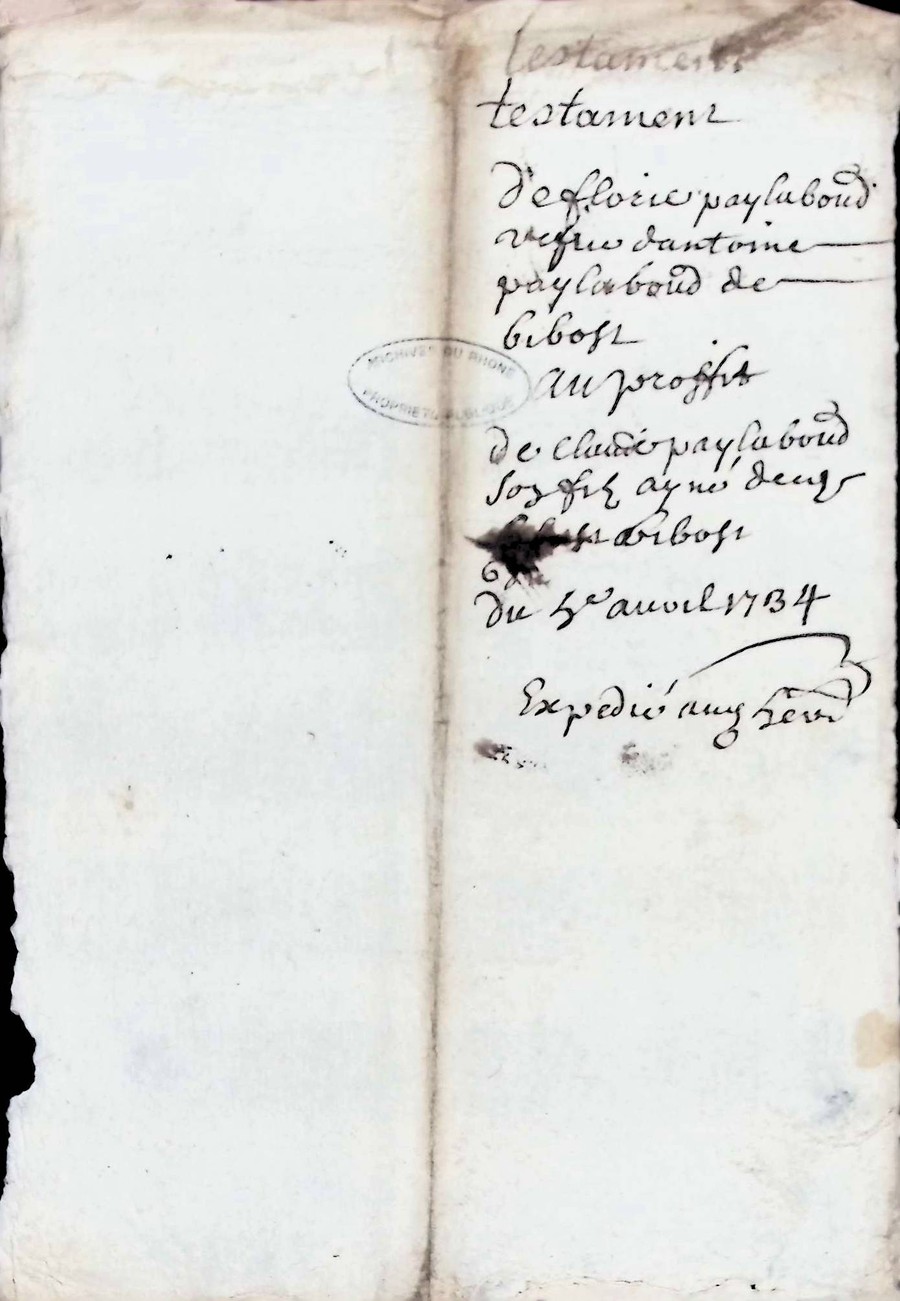 testament
testament
de florie paylaboud
vefue dantoine
paylaboud de
bibost
ARCHIVES DU RHONE
PROPRIETE PUBLIQUE
au proffit
de claude paylaboud
son filz ayné
a bibost
du 5e auvril 1734
Expedié aux